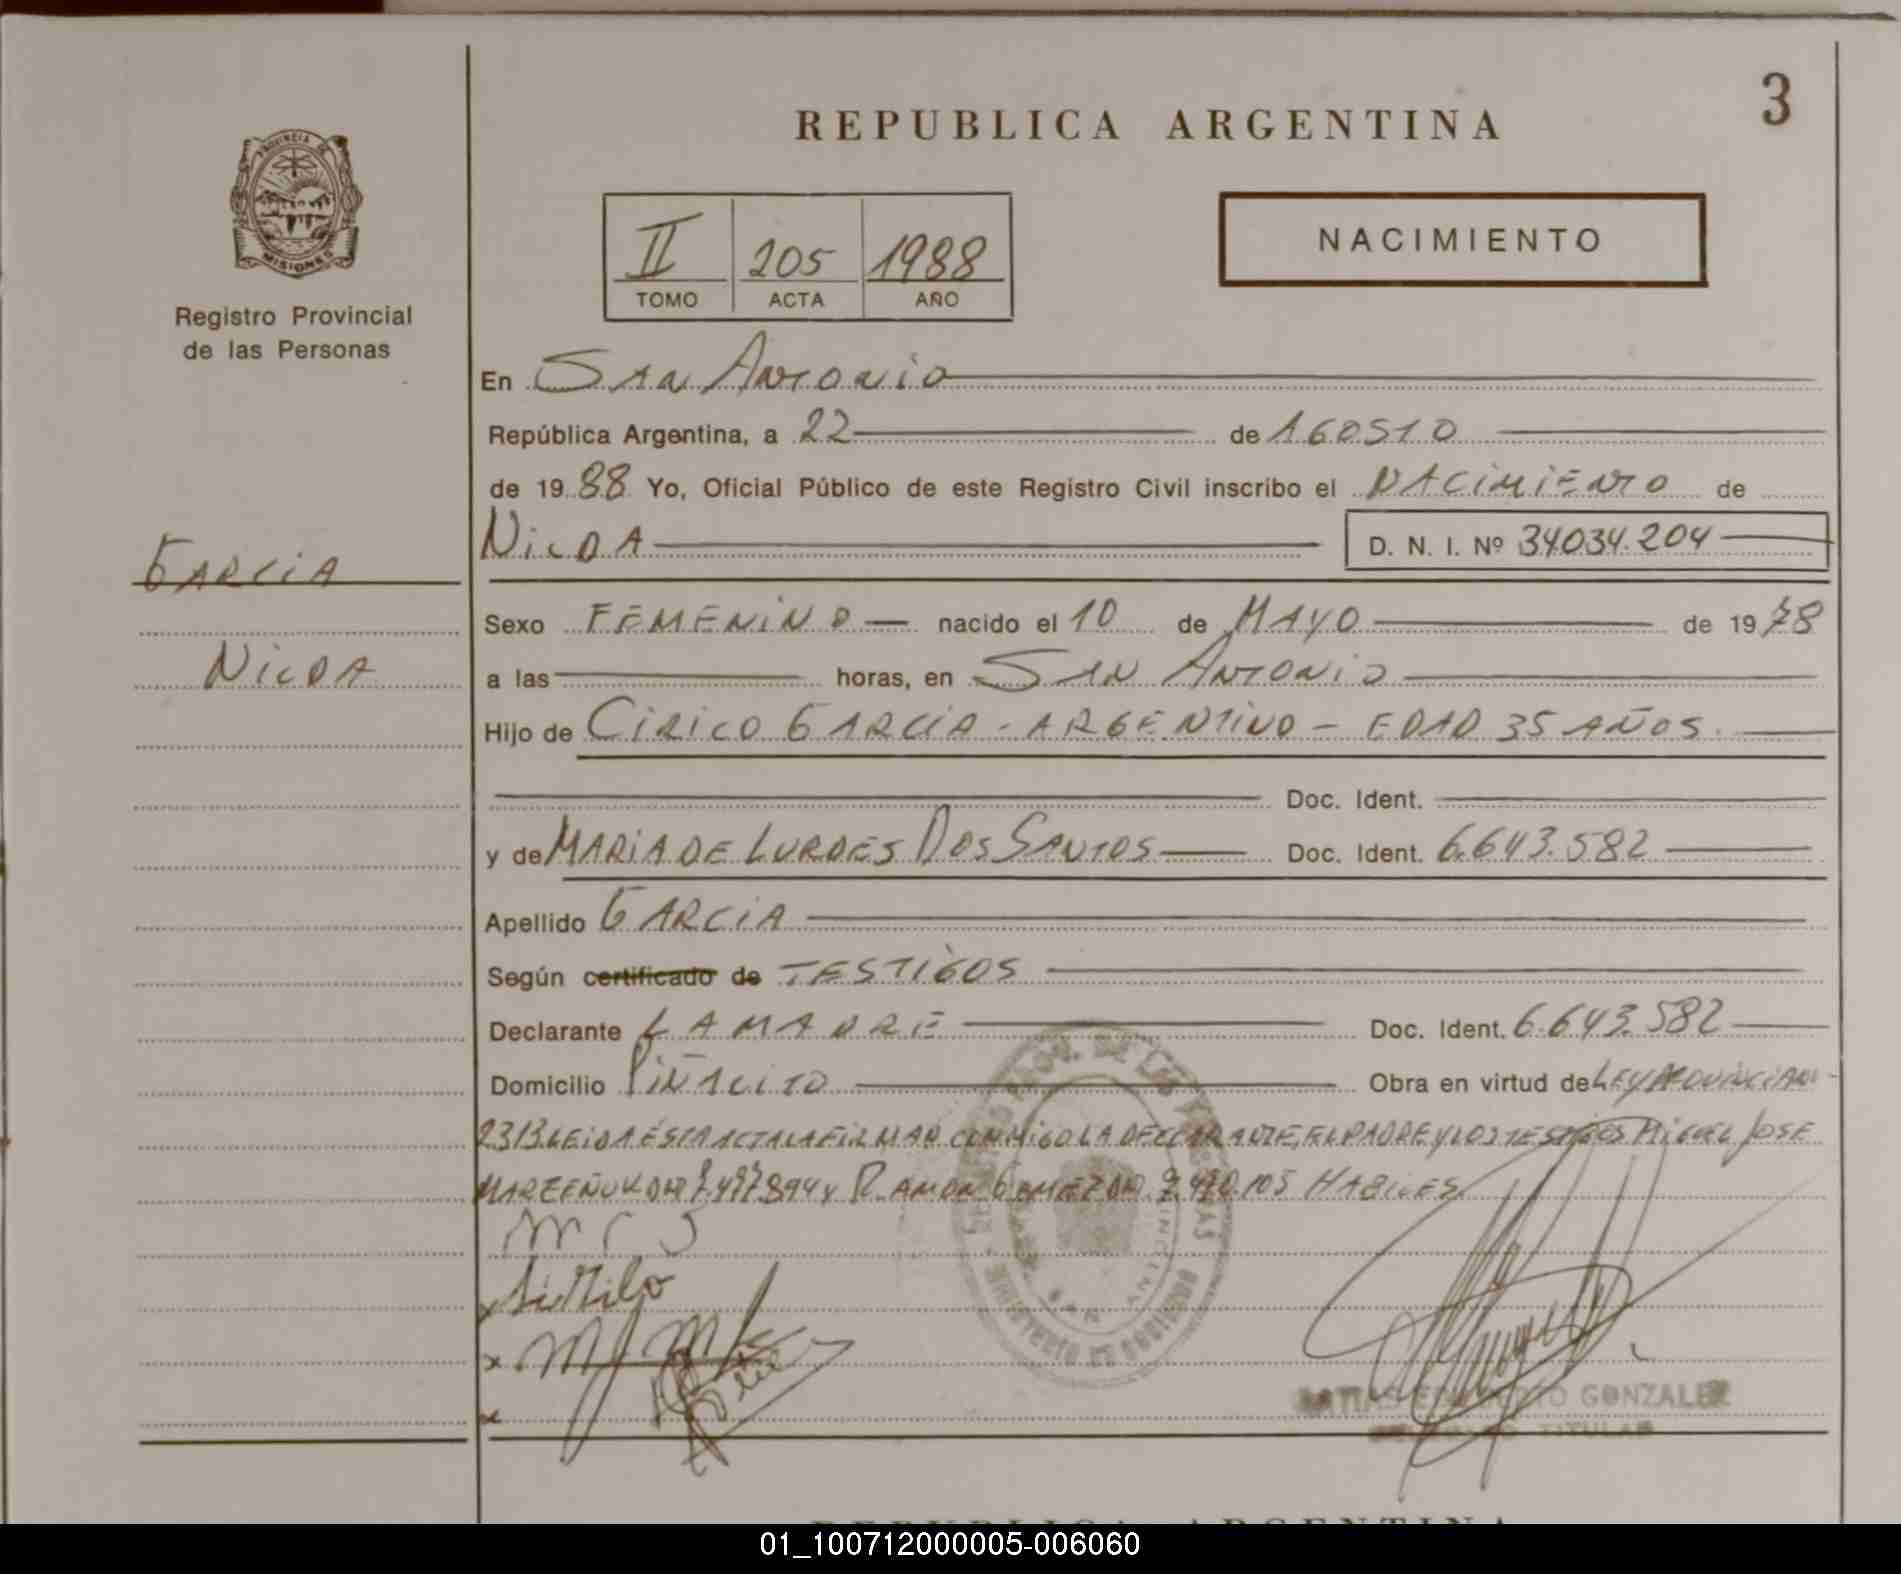 REPUBLICA ARGENTINA
3
PROVINCIA DE
MISIONES
Registro Provincial
de las Personas
II 205 1988
TOMO ACTA AÑO
NACIMIENTO
En San Antonio
República Argentina, a 22 de AGOSTO
de 1988 Yo, Oficial Público de este Registro Civil inscribo el NACIMIENTO de
NILDA D. N. I. Nº 34034.204
GARCIA
NILDA
Sexo FEMENINO nacido el 10 de MAYO de 1978
a las horas, en SAN ANTONIO
Hijo de CIRICO GARCIA - ARGENTINO - EDAD 35 AÑOS.
Doc. Ident.
y de MARIA DE LURDES DOS SANTOS Doc. Ident. 6.643.582
Apellido GARCIA
Según certificado de TESTIGOS
Declarante LA MADRE Doc. Ident. 6.643.582
Domicilio PIÑALITO Obra en virtud de LEY PROVINCIAL
2313 LEIDA ÉSTA ACTA LA FIRMAN CONMIGO LA DECLARANTE, EL PADRE Y LOS TESTIGOS MIGUEL JOSE
DNI 7.497.894 y RAMON GOMEZ DNI 9.490.105 HABILES
EDUARDO GONZALEZ
TITULAR
REPUBLICA ARGENTINA
01_100712000005-006060